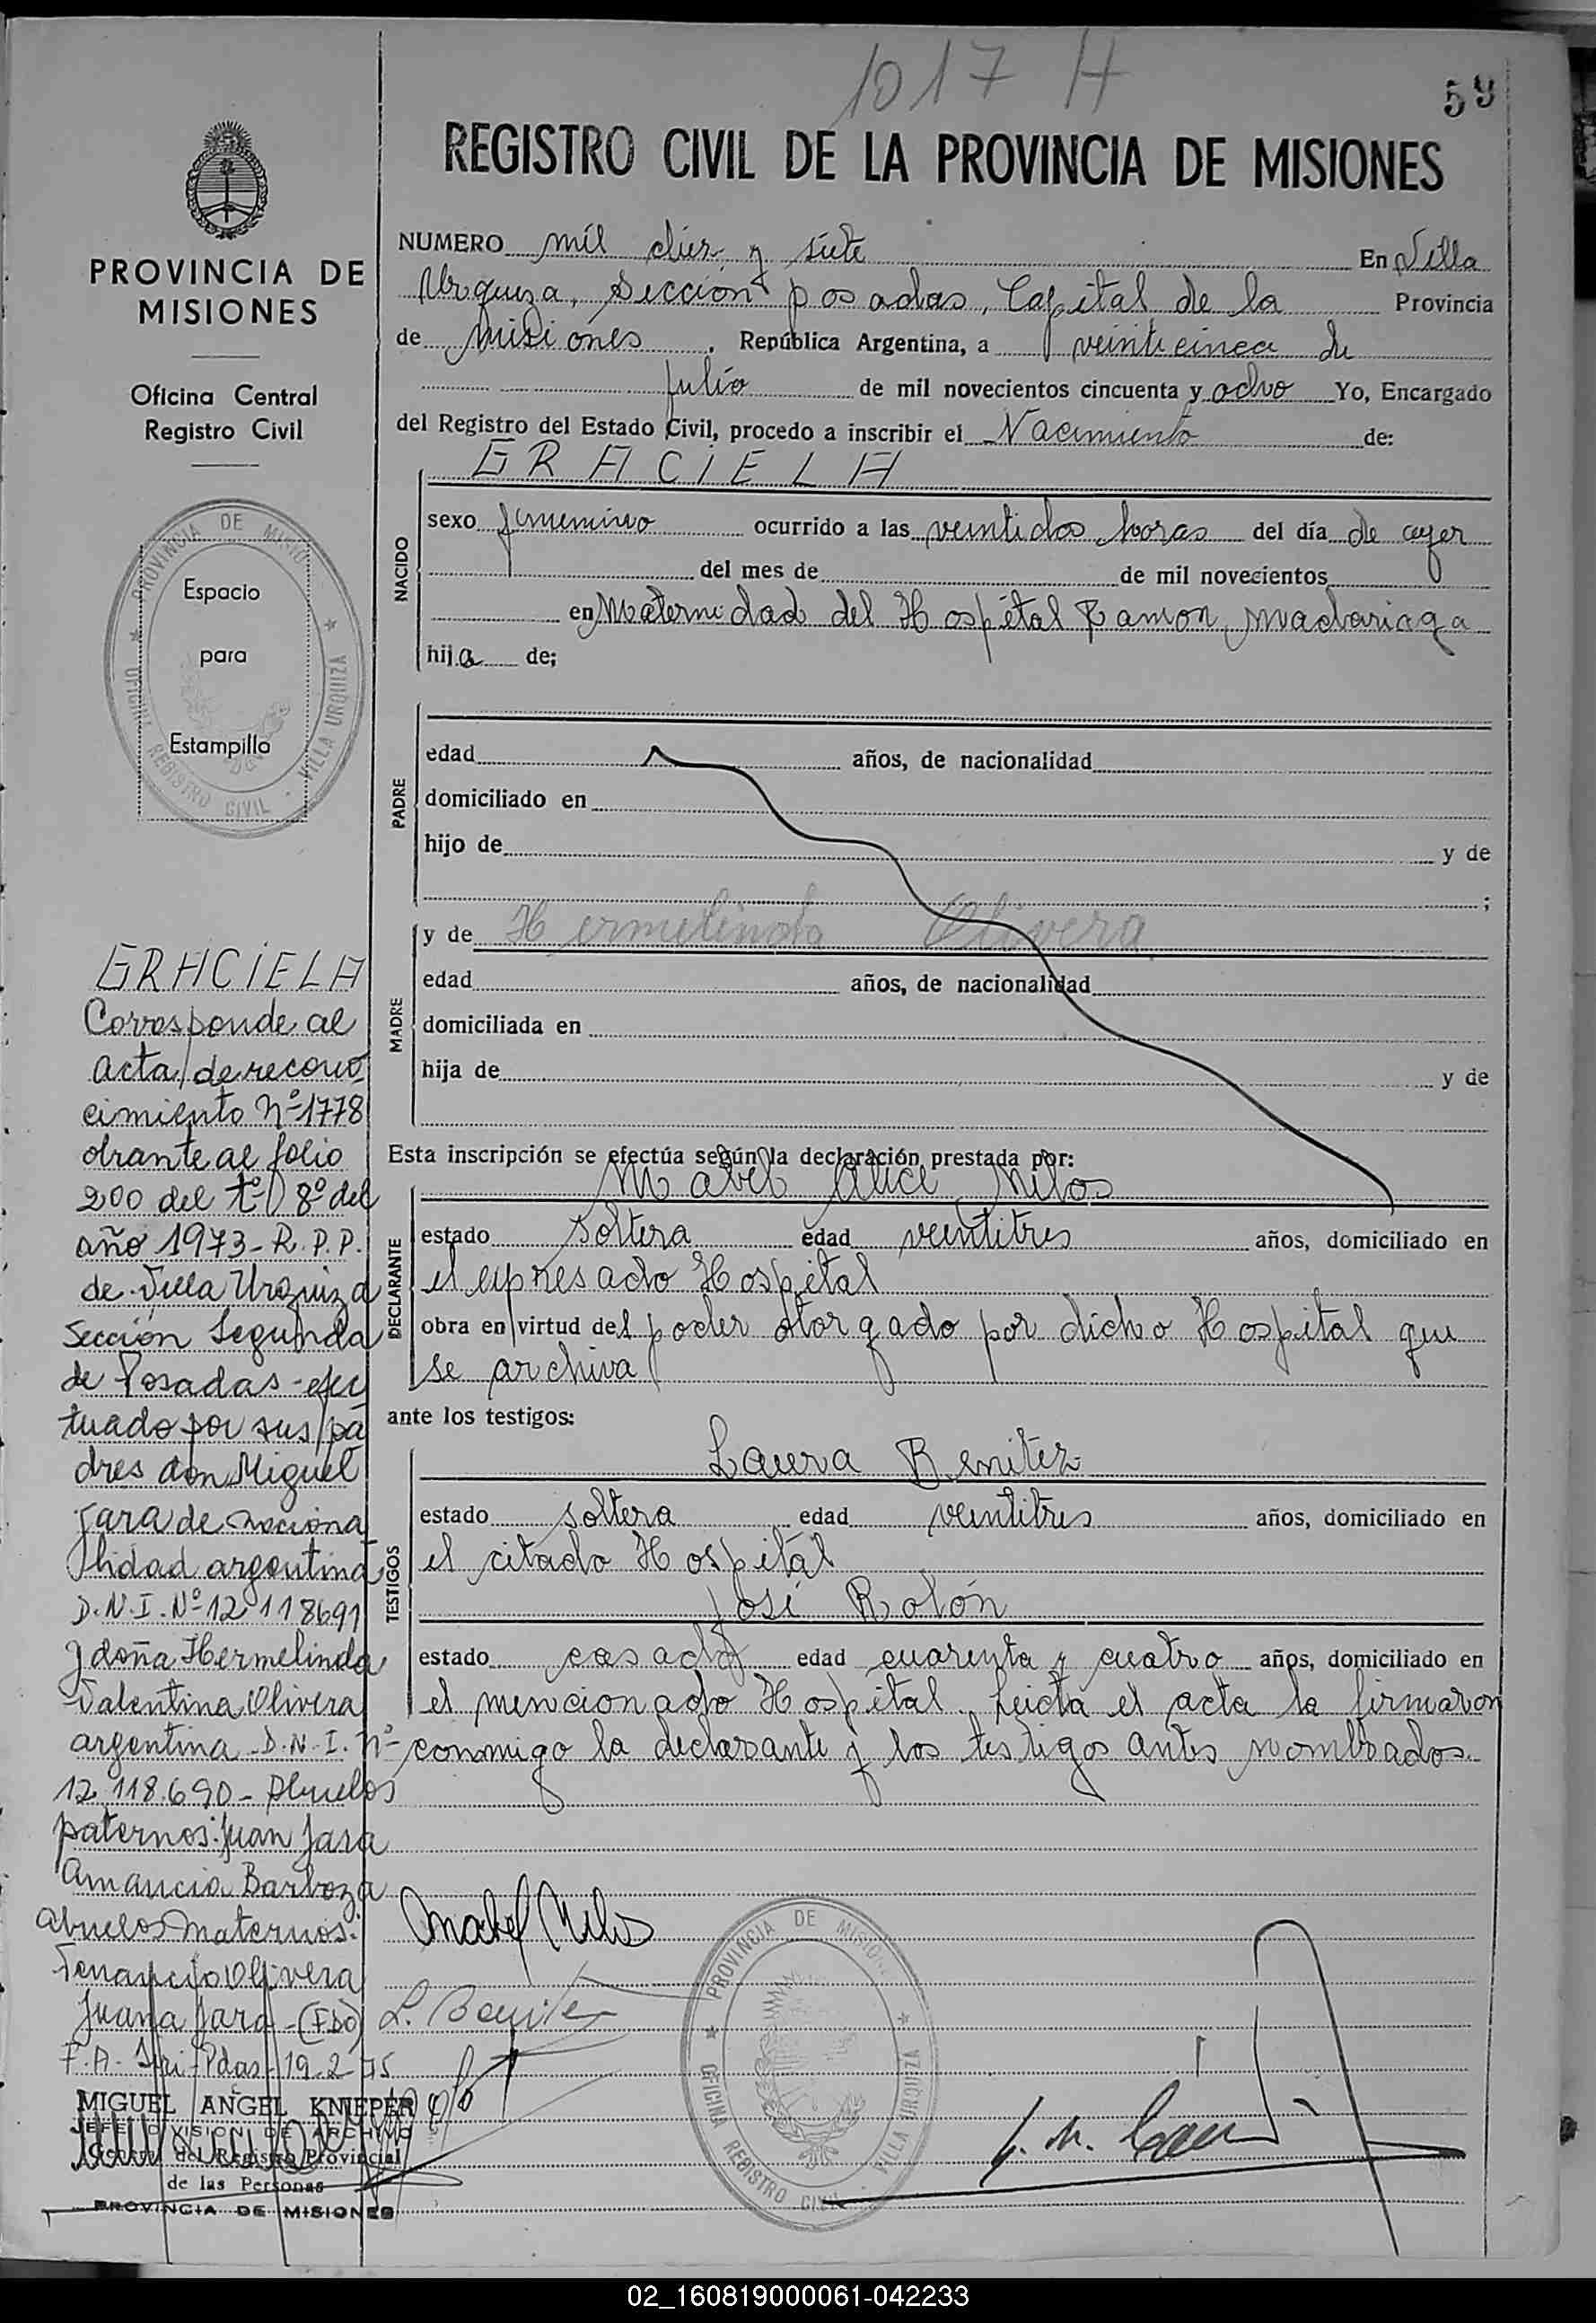 1017 H
59
REGISTRO CIVIL DE LA PROVINCIA DE MISIONES
PROVINCIA DE
MISIONES
Oficina Central
Registro Civil
PROVINCIA DE MISIONES
Espacio
para
Estampilla
OFICINA REGISTRO CIVIL - VILLA URQUIZA
GRACIELA
Corresponde al
acta de recono
cimiento Nº 1778
obrante al folio
200 del tº 8º del
año 1973 - R.P.P.
de Villa Urquiza
Sección Segunda
de Posadas - efec
tuado por sus pa
dres don Miguel
Jara de naciona
lidad argentina
D.N.I. Nº 12 118691
y doña Hermelinda
Valentina Olivera
argentina D.N.I. nº
12.118.690 - Abuelos
paternos: Juan Jara
Amancia Barboza
abuelos maternos:
Venancio Olivera
Juana Jara - (FDO)
Pdas - 19-2-75
MIGUEL ANGEL KNIEPER
JEFE DIVISION DE ARCHIVO
General del Registro Provincial
de las Personas
PROVINCIA DE MISIONES
NUMERO mil diez y siete En Villa
Urquiza, Sección posadas, Capital de la Provincia
de Misiones, República Argentina, a veinticinco de
Julio de mil novecientos cincuenta y ocho Yo, Encargado
del Registro del Estado Civil, procedo a inscribir el Nacimiento de:
NACIDO
GRACIELA
sexo femenino ocurrido a las veintidos horas del día de ayer
del mes de de mil novecientos
en Maternidad del Hospital Ramon Madariaga
hija de;
PADRE
edad años, de nacionalidad
domiciliado en
hijo de y de
;
MADRE
y de Hermelinda Olivera
edad años, de nacionalidad
domiciliada en
hija de y de
Esta inscripción se efectúa según la declaración prestada por:
DECLARANTE
Mabel Alice Milos
estado soltera edad veintitres años, domiciliado en
el expresado Hospital
obra en virtud del poder otorgado por dicho Hospital que
se archiva
ante los testigos:
TESTIGOS
Laura Benitez
estado soltera edad veintitres años, domiciliado en
el citado Hospital
José Rolón
estado casado edad cuarenta y cuatro años, domiciliado en
el mencionado Hospital. Leida el acta la firmaron
conmigo la declarante y los testigos antes nombrados.
Mabel Milos
L. Benitez
PROVINCIA DE MISIONES
OFICINA REGISTRO CIVIL VILLA URQUIZA
02_160819000061-042233